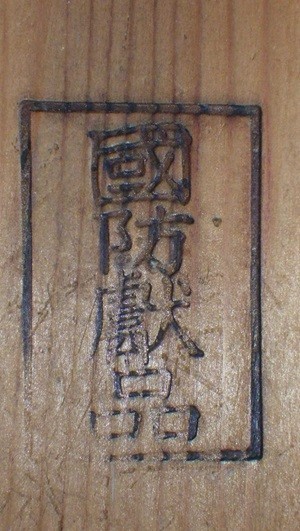 國防獻品